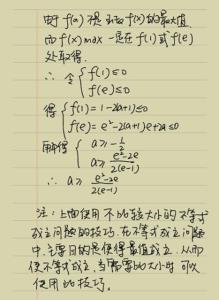 由于f(a)不是函数f(x)的最大值
而f(x)max一定在f(1)或f(e)
处取得.
∴ 令 { f(1)≤0
f(e)≤0
得 { f(1)=1-2(a+1)≤0
f(e)=e²-2(a+1)e+2a≤0
解得 { a≥-1/2
a≥ (e²-2e)/(2(e-1))
∴ a≥ (e²-2e)/(2(e-1))
注:上面使用不比较大小的不等式
成立问题的技巧.在不等式成立问题
中,主要目的是使得最值成立,从而
使不等式成立.当需要比大小时可以
使用此技巧。